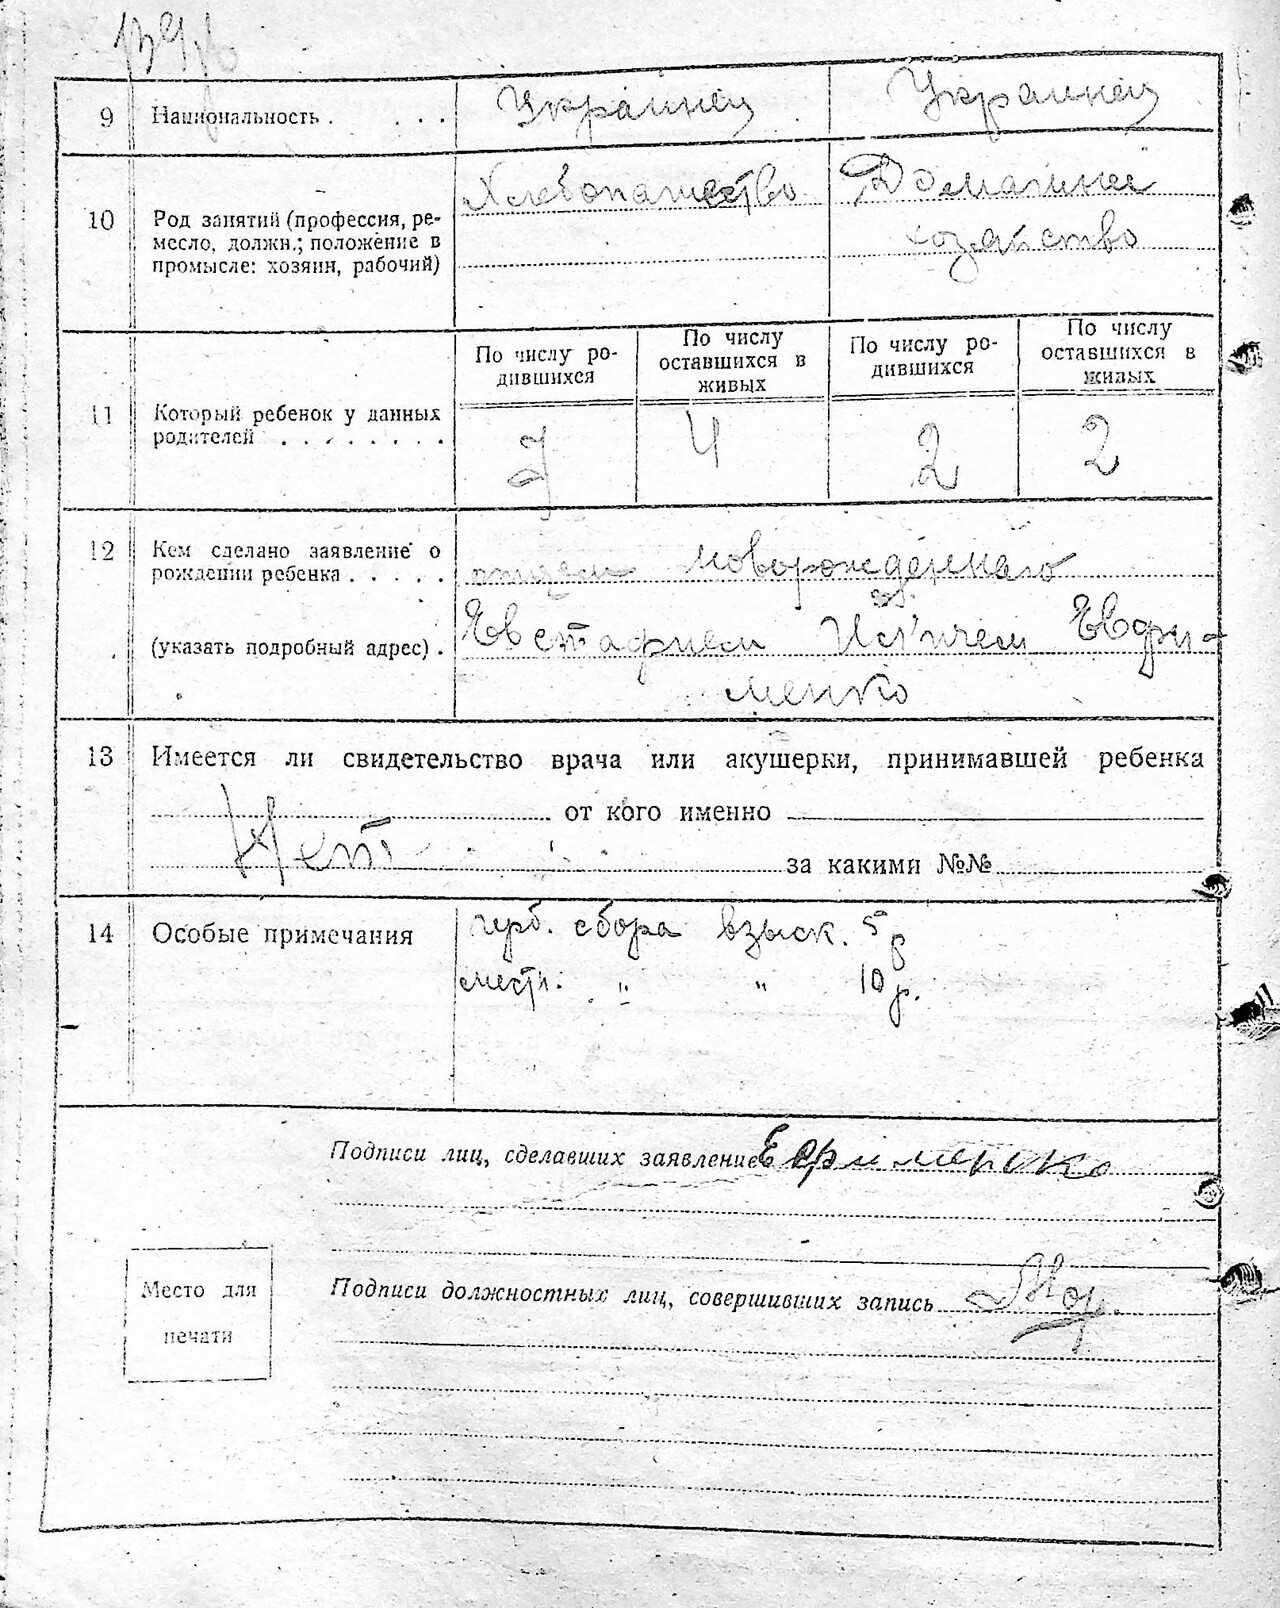 9 Национальность . . . . Украинец Украинец
Хлебопашество Домашнее
10 Род занятий (профессия, ре- хозяйство
месло, должн.; положение в
промысле: хозяин, рабочий)
По числу ро- По числу По числу ро- По числу
дившихся оставшихся в дившихся оставшихся в
живых живых
11 Который ребенок у данных
родителей . . . . . . . . 7 4 2 2
12 Кем сделано заявление о
рождении ребенка . . . . . отцем новорожденаго
(указать подробный адрес) . Евстафием Евфи-
менко
13 Имеется ли свидетельство врача или акушерки, принимавшей ребенка
от кого именно
Нет за какими №№
14 Особые примечания герб. сбора взыск. 5 р
местн. " " 10 р.
Подписи лиц, сделавших заявление Ефименко
Место для Подписи должностных лиц, совершивших запись
печати